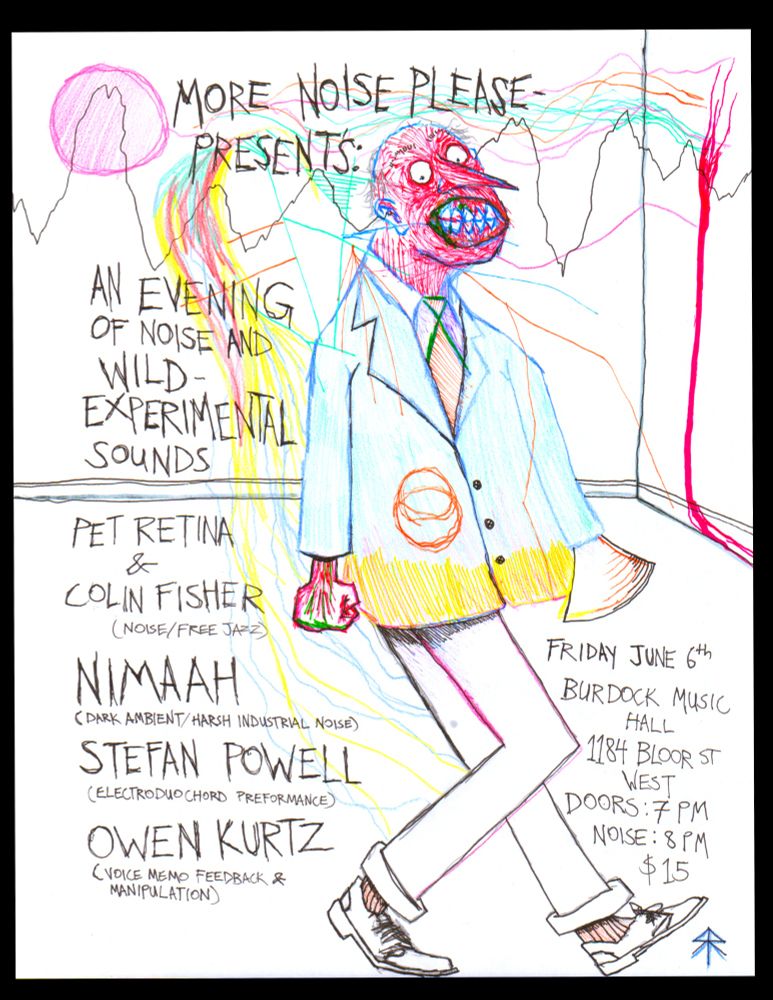 MORE NOISE PLEASE-
PRESENT'S:
AN EVENING
OF NOISE AND
WILD-
EXPERIMENTAL
SOUNDS
PET RETINA
&
COLIN FISHER
(NOISE/FREE JAZZ)
NIMAAH
(DARK AMBIENT/HARSH INDUSTRIAL NOISE)
STEFAN POWELL
(ELECTRODUOCHORD PREFORMANCE)
OWEN KURTZ
(VOICE MEMO FEEDBACK &
MANIPULATION)
FRIDAY JUNE 6th
BURDOCK MUSIC
HALL
1184 BLOOR ST
WEST
DOORS: 7 PM
NOISE: 8 PM
$15